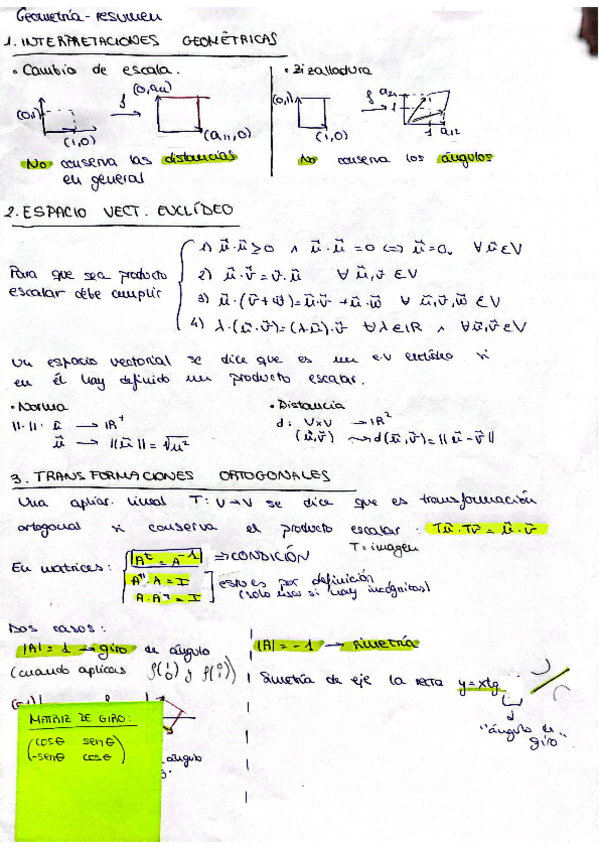 Geometría - resumen
1. INTERPRETACIONES GEOMÉTRICAS
• Cambio de escala.
(0,1)
(1,0)
f
(a₁₁,0)
• Zizalladura
(0,1)
(1,0)
f
a₂₁
1
1
a₁₂
No conserva las distancias
en general
No conserva los ángulos
2. ESPACIO VECT. EUCLÍDEO
Para que sea producto
escalar debe cumplir
1) u⃗·u⃗≥0 ∧ u⃗·u⃗=0 ⇔ u⃗=0, ∀u⃗∈V
2) u⃗·v⃗=v⃗·u⃗ ∀u⃗,v⃗∈V
3) u⃗·(v⃗+w⃗)=u⃗·v⃗+u⃗·w⃗ ∀u⃗,v⃗,w⃗∈V
4) λ·(u⃗·v⃗)=(λ·u⃗)·v⃗ ∀λ∈ℝ ∧ ∀u⃗,v⃗∈V
Un espacio vectorial se dice que es un e.v euclídeo si
en él hay definido un producto escalar.
• Norma
→ ℝ⁺
u⃗ → ||u⃗||=√u⃗²
• Distancia
d: V×V → ℝ²
(u⃗,v⃗) ⇝ d(u⃗,v⃗)=||u⃗-v⃗||
3. TRANSFORMACIONES ORTOGONALES
Una aplicar. lineal T: V→V se dice que es transformación
ortogonal si conserva el producto escalar: Tu⃗·Tv⃗=u⃗·v⃗
T=imagen
En matrices:
Aᵗ=A⁻¹ ⇒ CONDICIÓN
esto es por definición
(solo usar si hay incógnitas)
Dos casos:
|A|=1 → giro de ángulo
(cuando aplicas f(1 0) y f(0 1))
MATRIZ DE GIRO:
(cosθ senθ
-senθ cosθ)
ángulo
|A|=-1 → simetría
Simetría de eje la recta y=xtg
"ángulo de
giro"